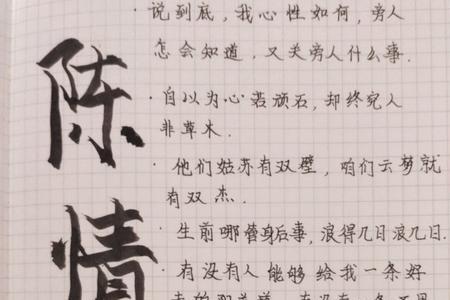 陈情
·说到底，我心性如何，旁人
怎会知道，又关旁人什么事.
·自以为心若顽石，却终究人
非草木.
·他们姑苏有双璧，咱们云梦就
有双杰.
·生前哪管身后事，浪得几日浪几日.
·有没有人能够给我一条好